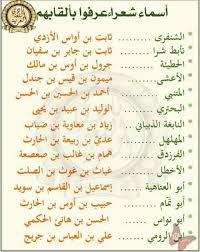 أسماء شعراء عرفوا بألقابهم
الشنفرى ........ ثابت بن أواس الأزدي
تأبط شرا ........ ثابت بن جابر بن سفيان
الحطيئة ........ جرول بن أوس بن مالك
الأعشى ........ ميمون بن قيس بن جندل
المتنبي ........ أحمد بن الحسين بن الحسن
البحتري ........ الوليد بن عبيد بن يحيى
النابغة الذبياني .... زياد بن معاوية بن ضباب
المهلهل ........ عدي بن ربيعة بن الحارث
الفرزدق ........ همام بن غالب بن صعصعة
الأخطل ........ غياث بن غوث بن الصلت
أبو العتاهية .... إسماعيل بن القاسم بن سويد
أبو تمام ........ حبيب بن أوس بن الحارث
أبو نواس ........ الحسن بن هانئ الحكمي
ابن الرومي ........ علي بن العباس بن جريج